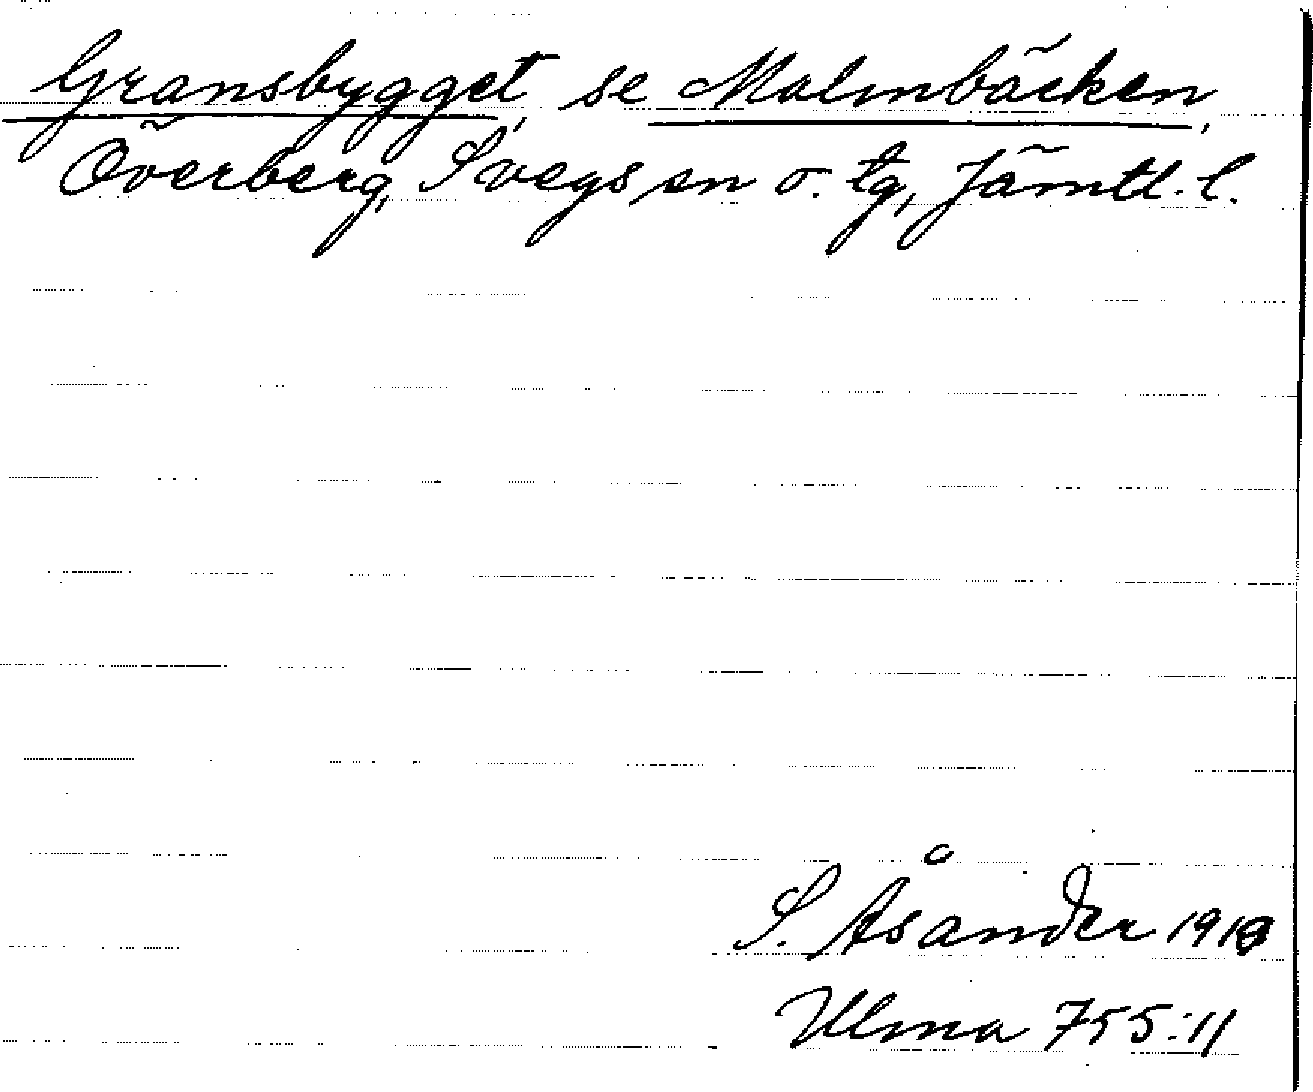 Gransbygget, se Malmbäcken,
Överberg, Svegs sn o. tg, Jämtl. l.
S. Åsander 1918
Ulma 755:11